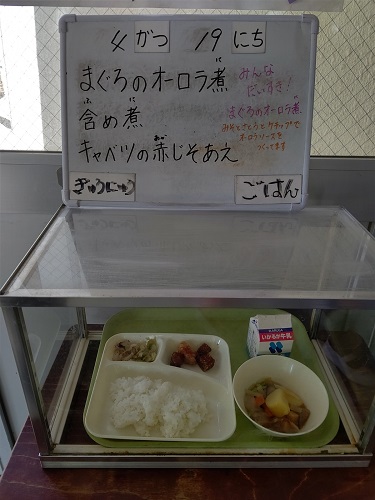 4がつ 19にち
まぐろのオーロラ煮
に
含め煮
ふく に
キャベツの赤じそあえ
あか
ぎゅうにゅう
ごはん
みんな
だいすき！
まぐろのオーロラ煮
に
みそとさとうとケチャップで
オーロラソースを
つくってます
いかるが牛乳